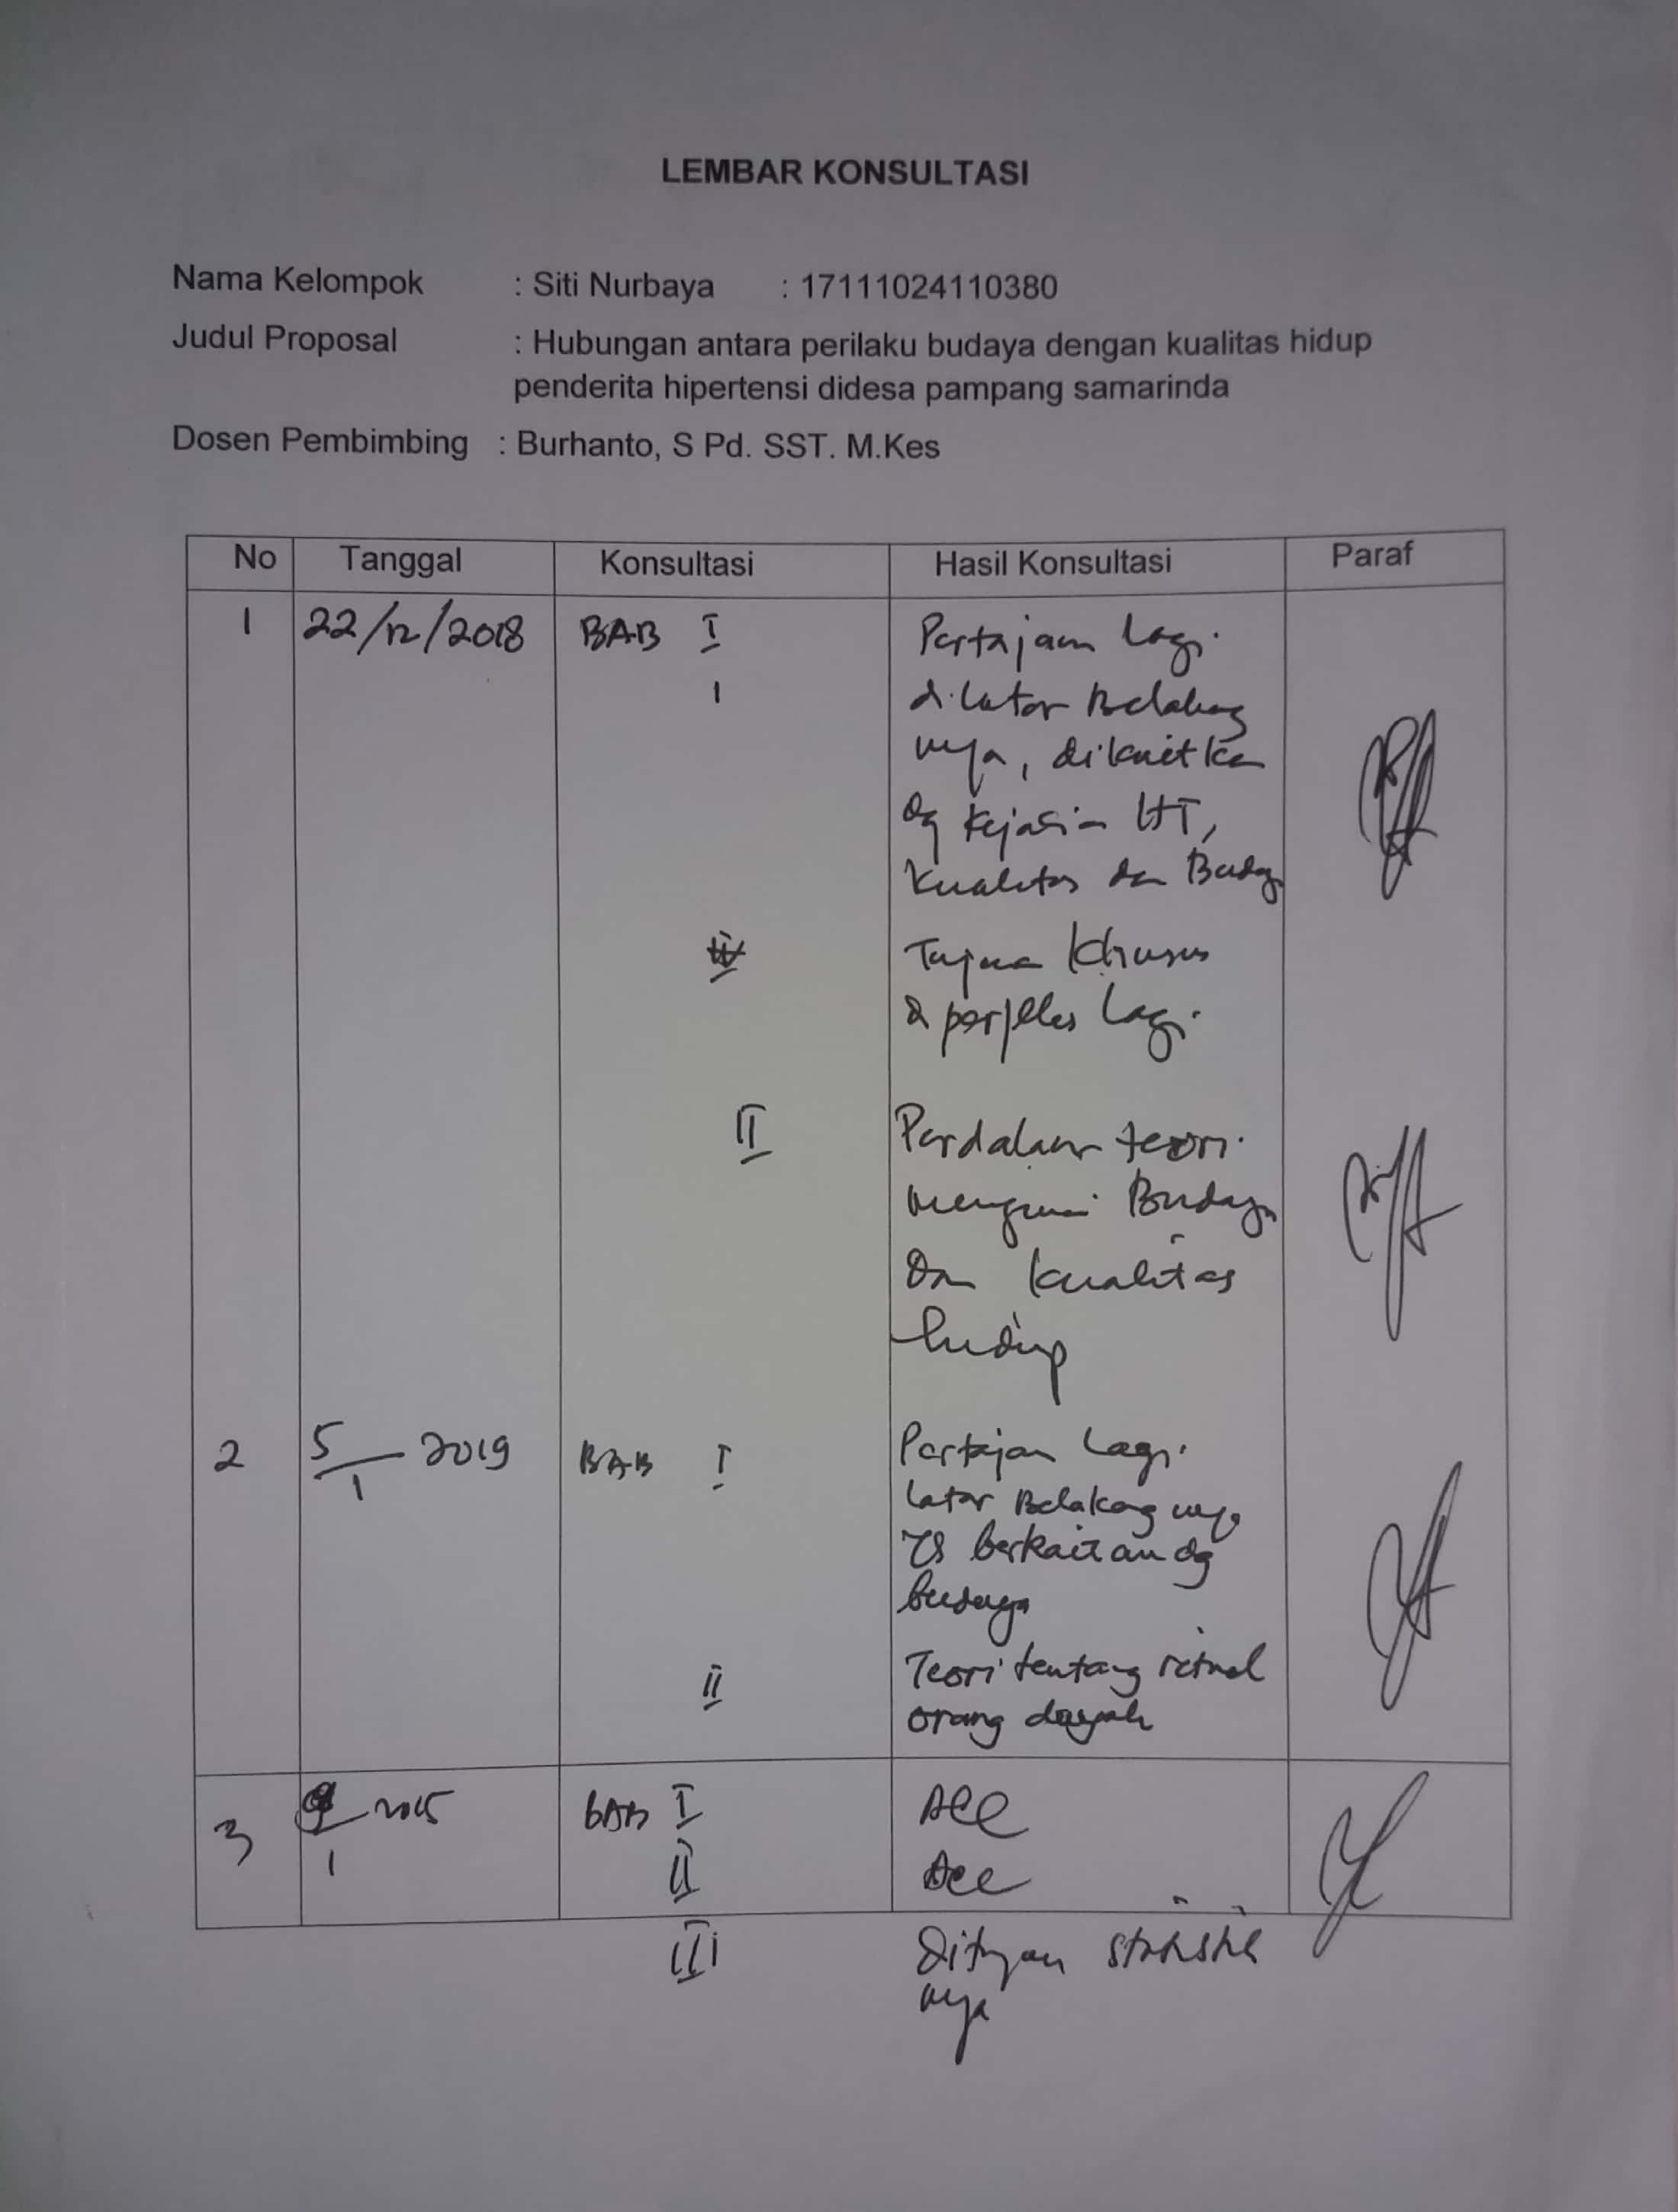 LEMBAR KONSULTASI
Nama Kelompok : Siti Nurbaya : 17111024110380
Judul Proposal : Hubungan antara perilaku budaya dengan kualitas hidup
penderita hipertensi didesa pampang samarinda
Dosen Pembimbing : Burhanto, S Pd. SST. M.Kes
No Tanggal Konsultasi Hasil Konsultasi Paraf
1 22/12/2018 BAB I Pertajam Lagi
1 di Latar Belakang
nya, dikaitkan
dg Kejadian HT,
Kualitas dan Budaya
Tujuan Khusus
di perjelas Lagi
II Perdalam teori
mengenai Budaya
Dan Kualitas
hidup
2 5/1 2019 BAB I Pertajam Lagi
Latar Belakang nya
yg berkaitan dg
budaya
II Teori tentang ritual
orang dayak
3 BAB I Acc
1 II Acc
III statistik
nya